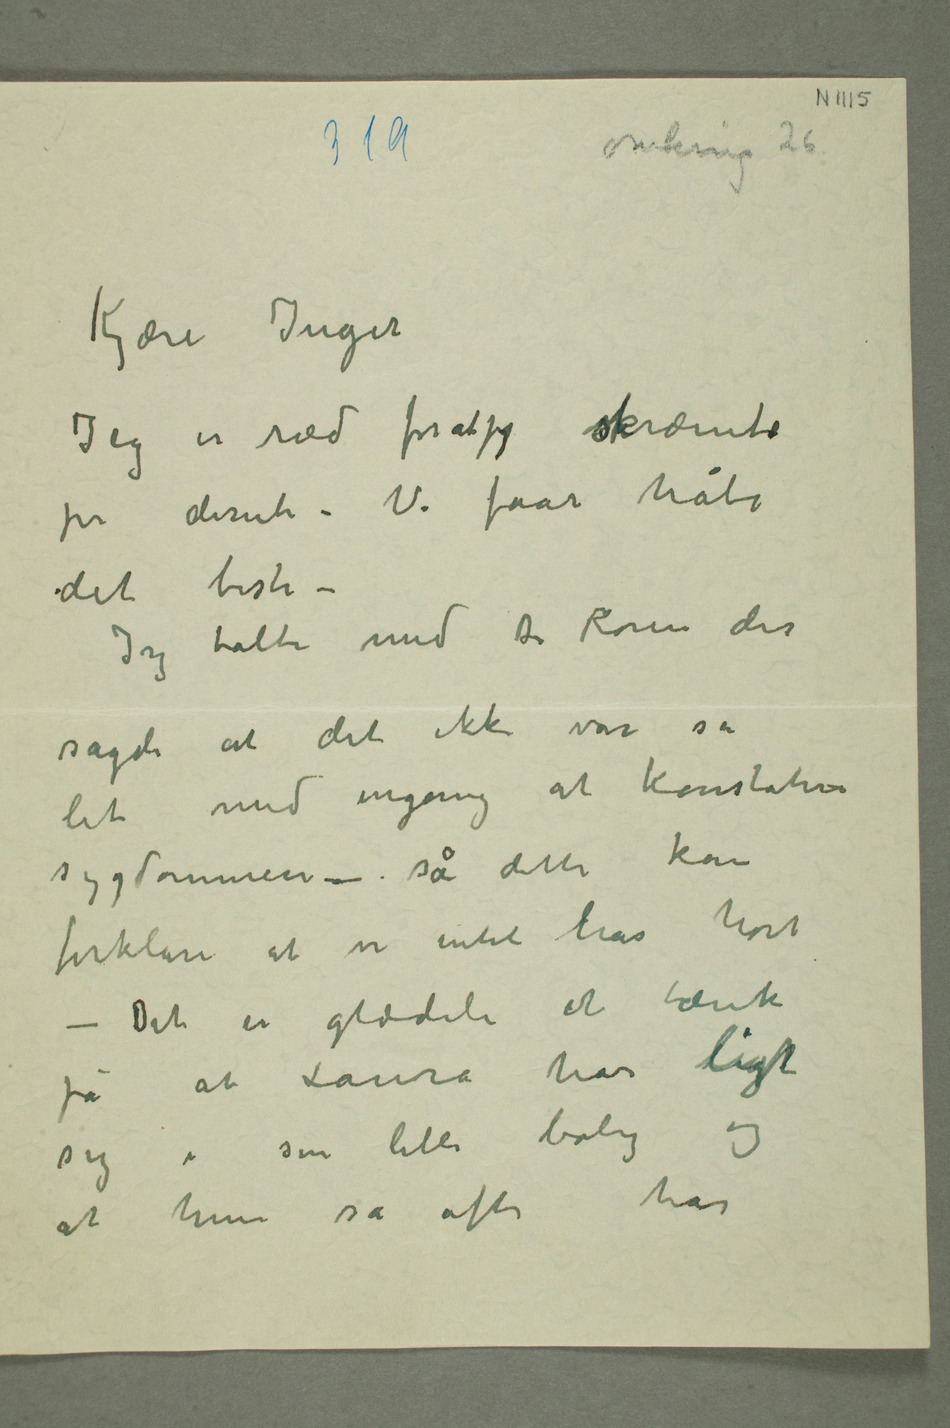 N 1115
319
omkring 26
Kjære Inger
Jeg er ræd for at jeg skræmte
jer derute – Vi faar håbe
det beste –
Jeg talte med Dr Koren der
sagde at det ikke var sa
let med engang at konstatere
sygdommen – så dette kan
forklare at vi intet har hørt
– Det er glædeli at tænke
på at Laura har ligt
sig i sin lille bolig og
at hun sa ofte har